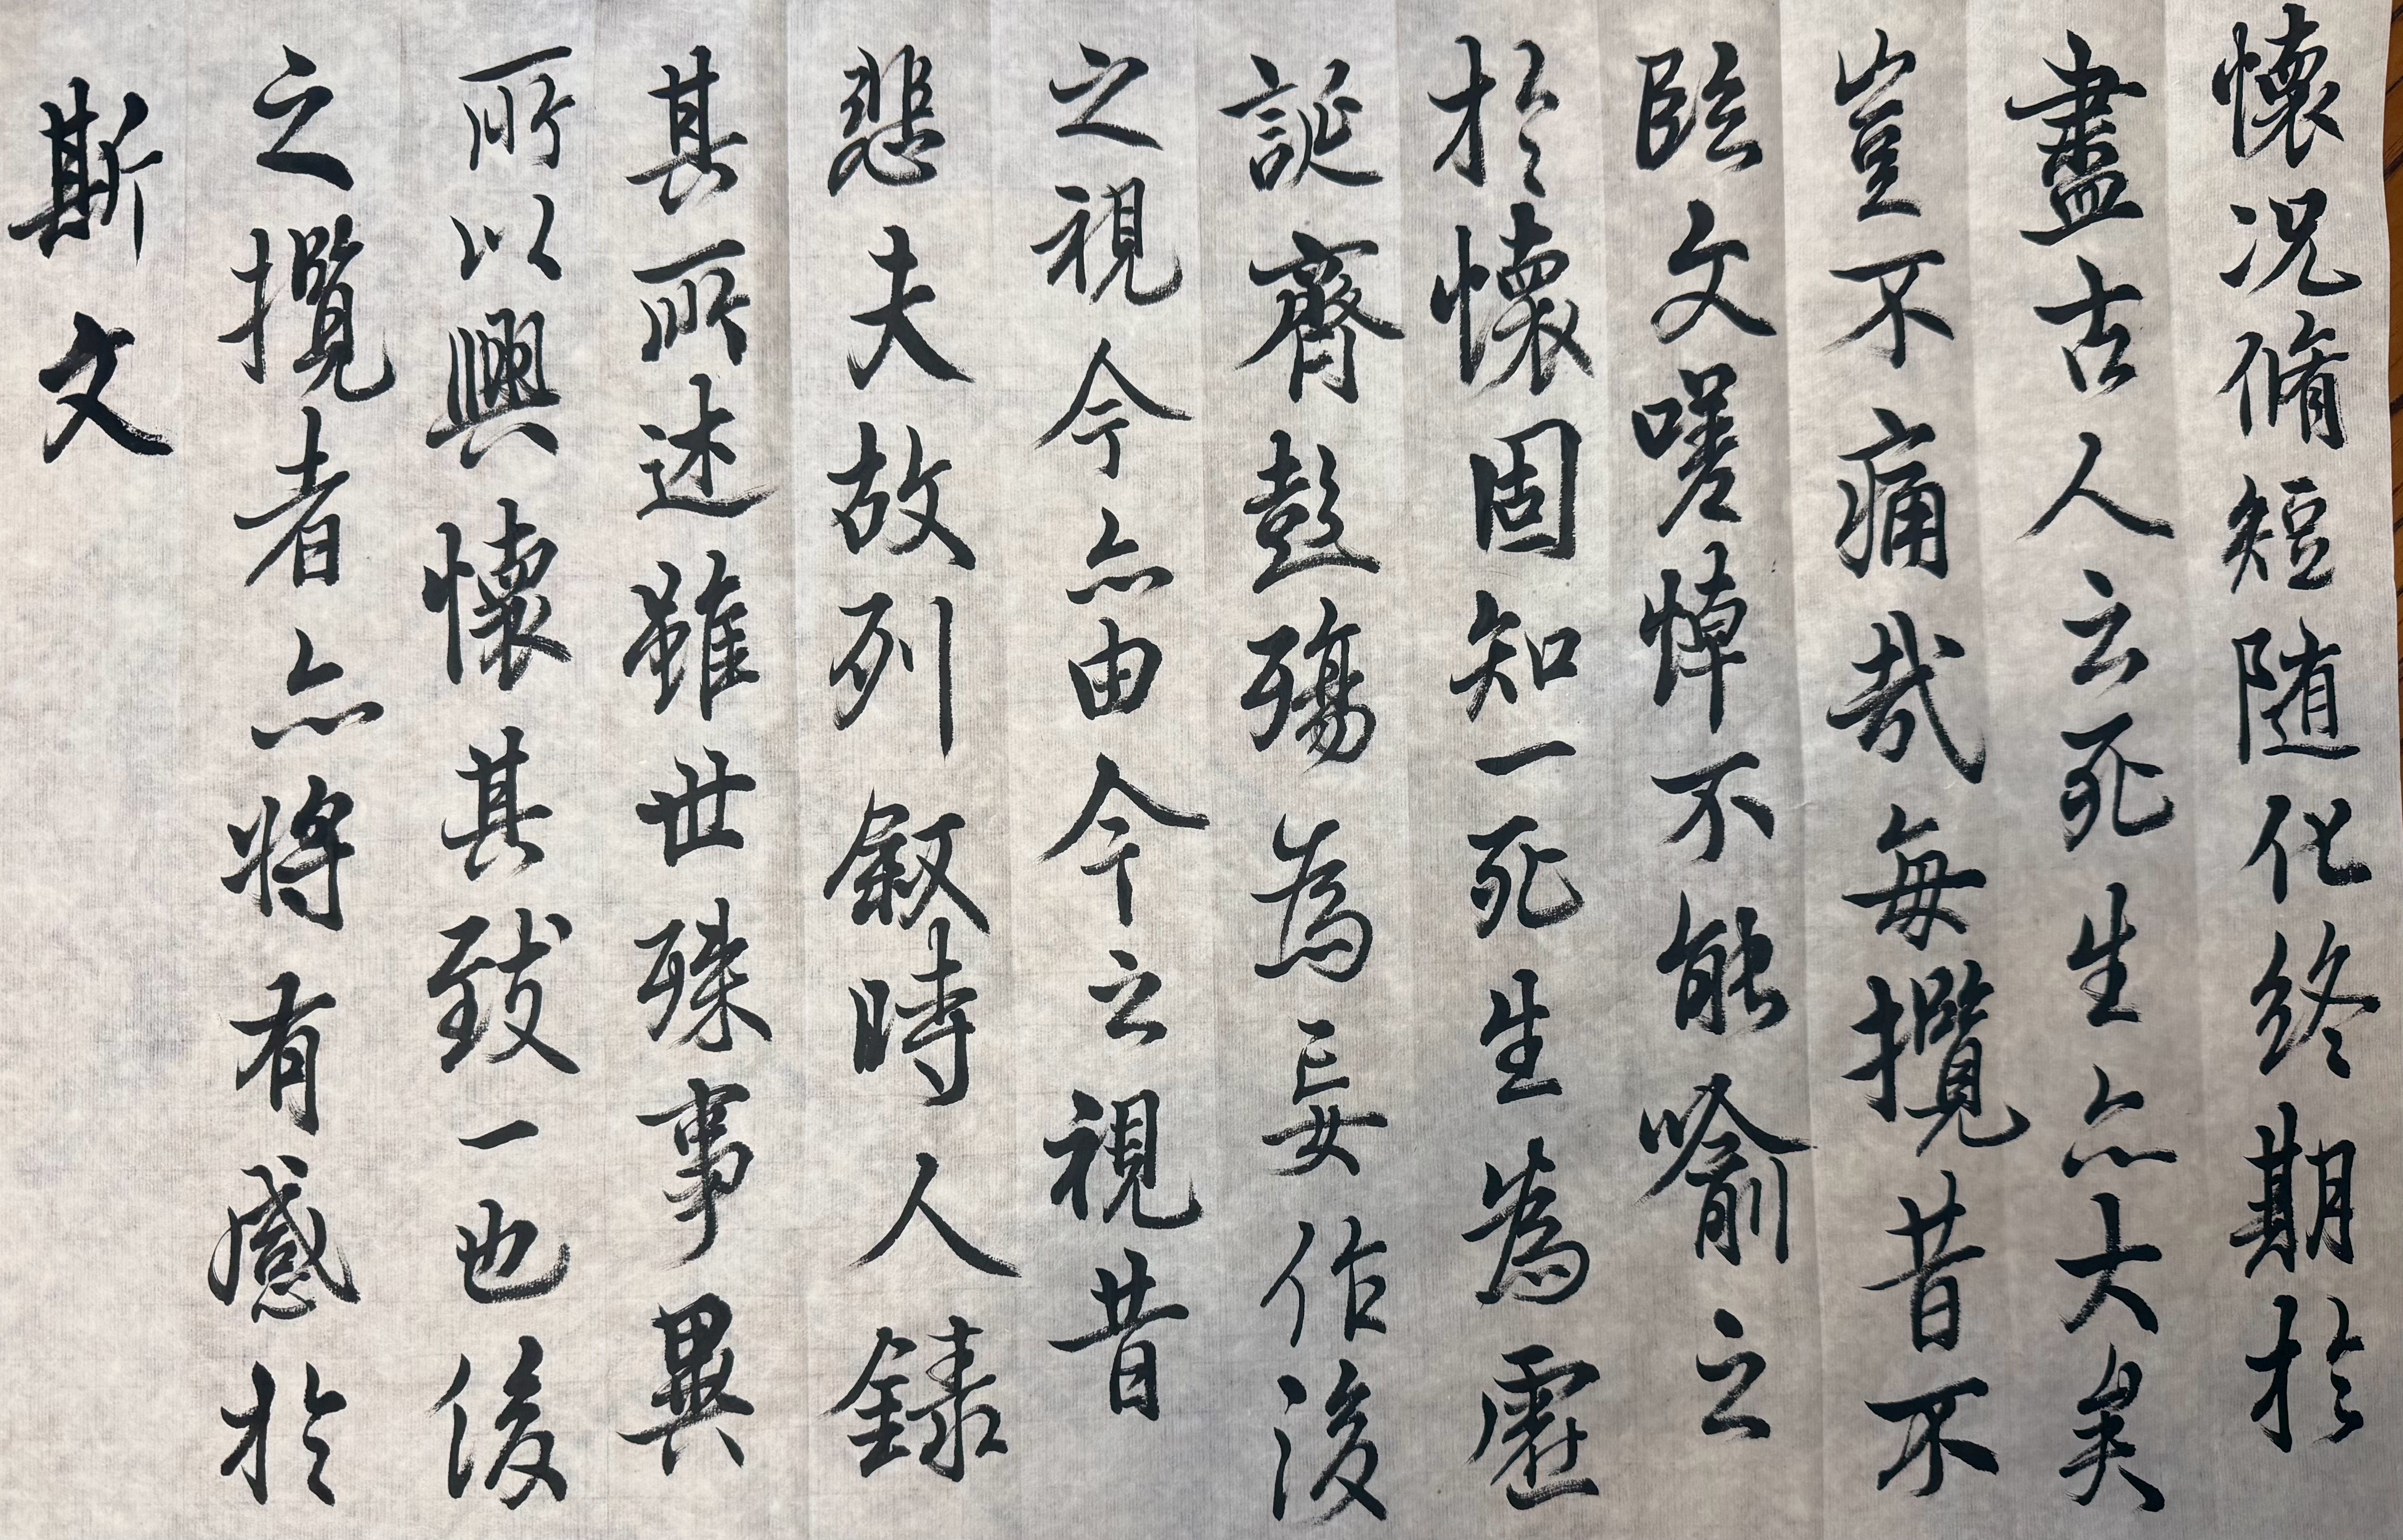 懷況脩短随化終期於
盡古人云死生亦大矣
豈不痛哉每攬昔不
臨文嗟悼不能喻之
於懷固知一死生為虛
誕齊彭殤為妄作後
之視今亦由今之視昔
悲夫故列叙時人錄
其所述雖世殊事異
所以興懷其致一也後
之攬者亦將有感於
斯文